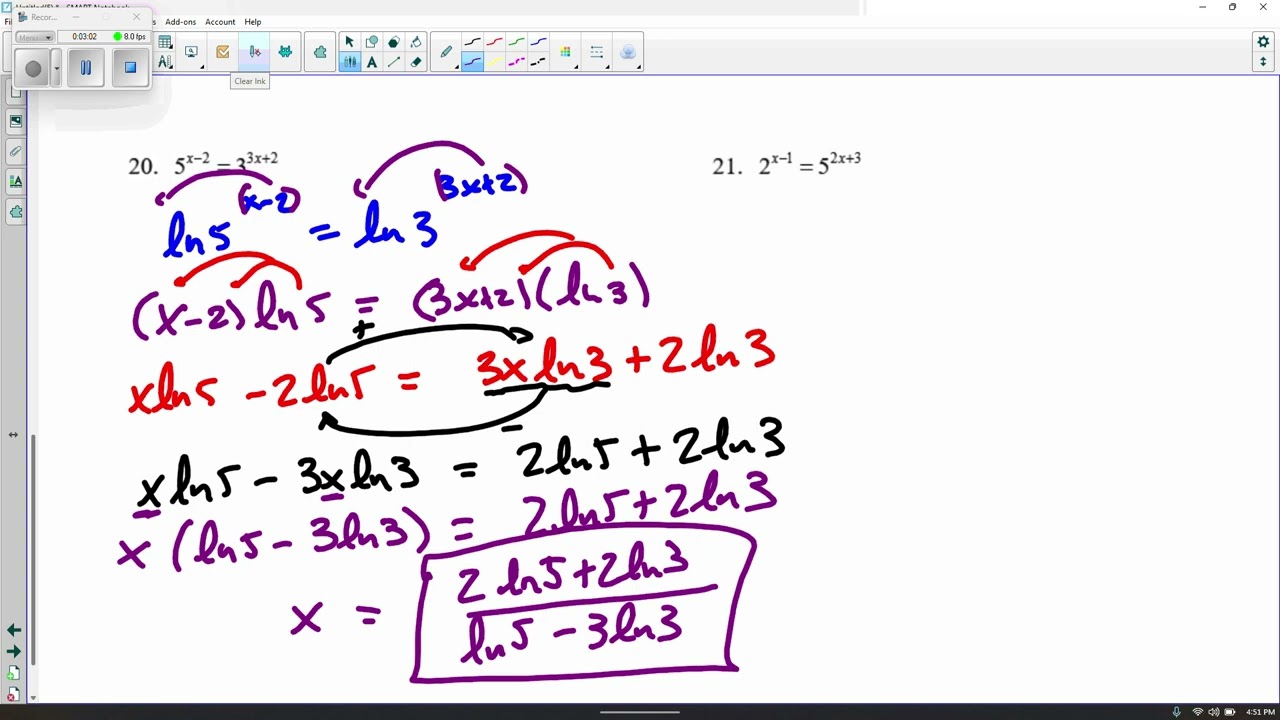 Recor...
Menu
0:03:02
8.0 fps
Add-ons Account Help
Clear Ink
20. 5^{x-2} = 3^{3x+2}
ln 5^{(x-2)} = ln 3^{(3x+2)}
(x-2) ln 5 = (3x+2)(ln 3)
+
x ln 5 - 2 ln 5 = 3x ln 3 + 2 ln 3
−
x ln 5 - 3x ln 3 = 2 ln 5 + 2 ln 3
x (ln 5 - 3 ln 3) = 2 ln 5 + 2 ln 3
x = 2 ln 5 + 2 ln 3
ln 5 - 3 ln 3
21. 2^{x-1} = 5^{2x+3}
4:51 PM